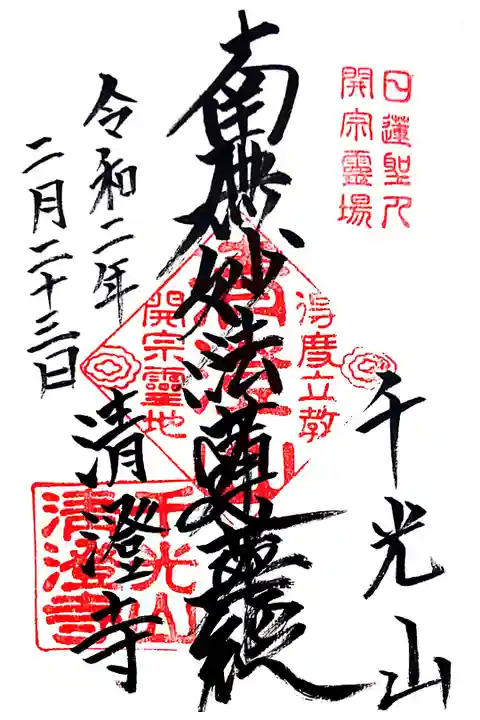 日蓮聖人
開宗靈場
千光山
南無妙法蓮華經
得度立教
開宗靈地
清澄寺
千光山
清澄寺
令和二年
二月二十三日